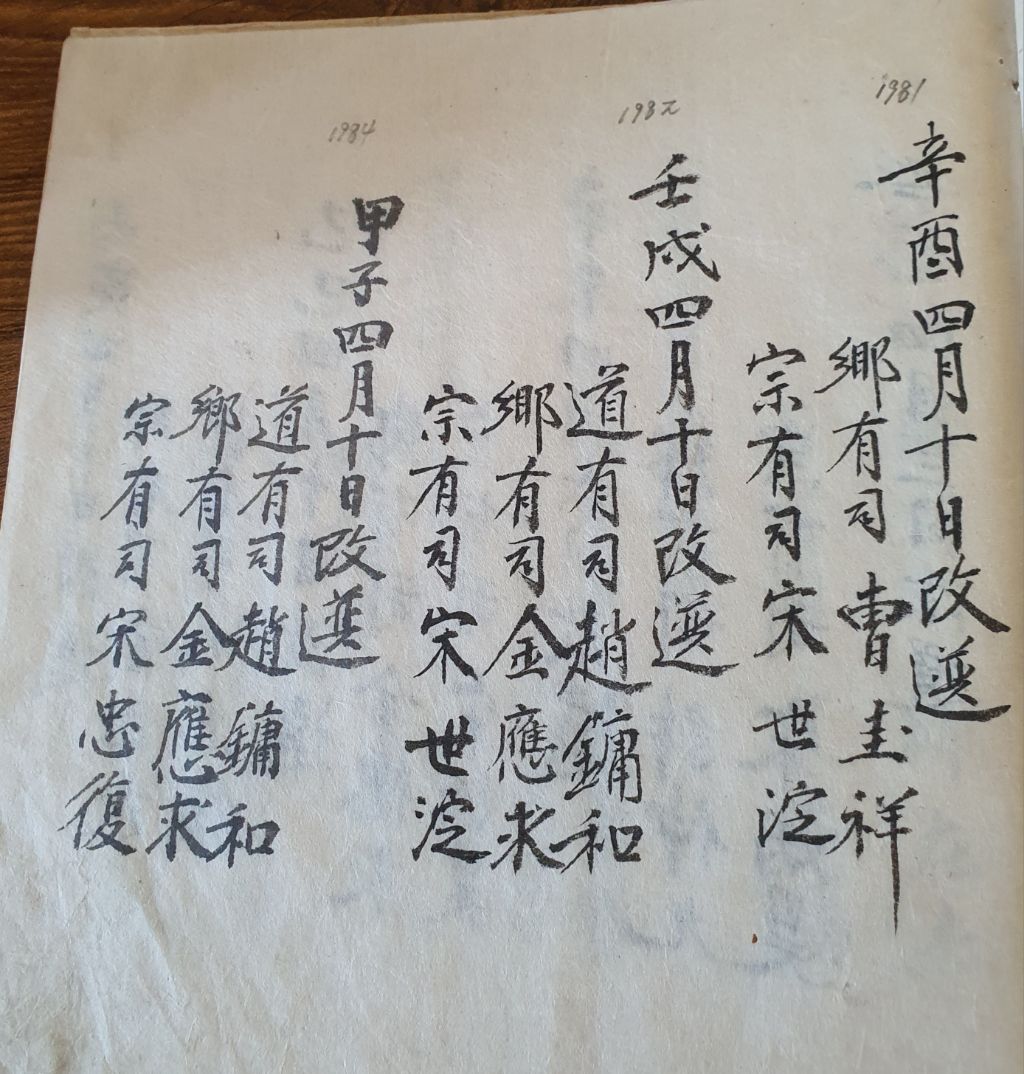 1981
辛酉四月十日改選
鄕有司 曺圭祥
宗有司 宋世淀
1982
壬戌四月十日改選
道有司 趙鏞和
鄕有司 金應求
宗有司 宋世淀
1984
甲子四月十日改選
道有司 趙鏞和
鄕有司 金應求
宗有司 宋忠復